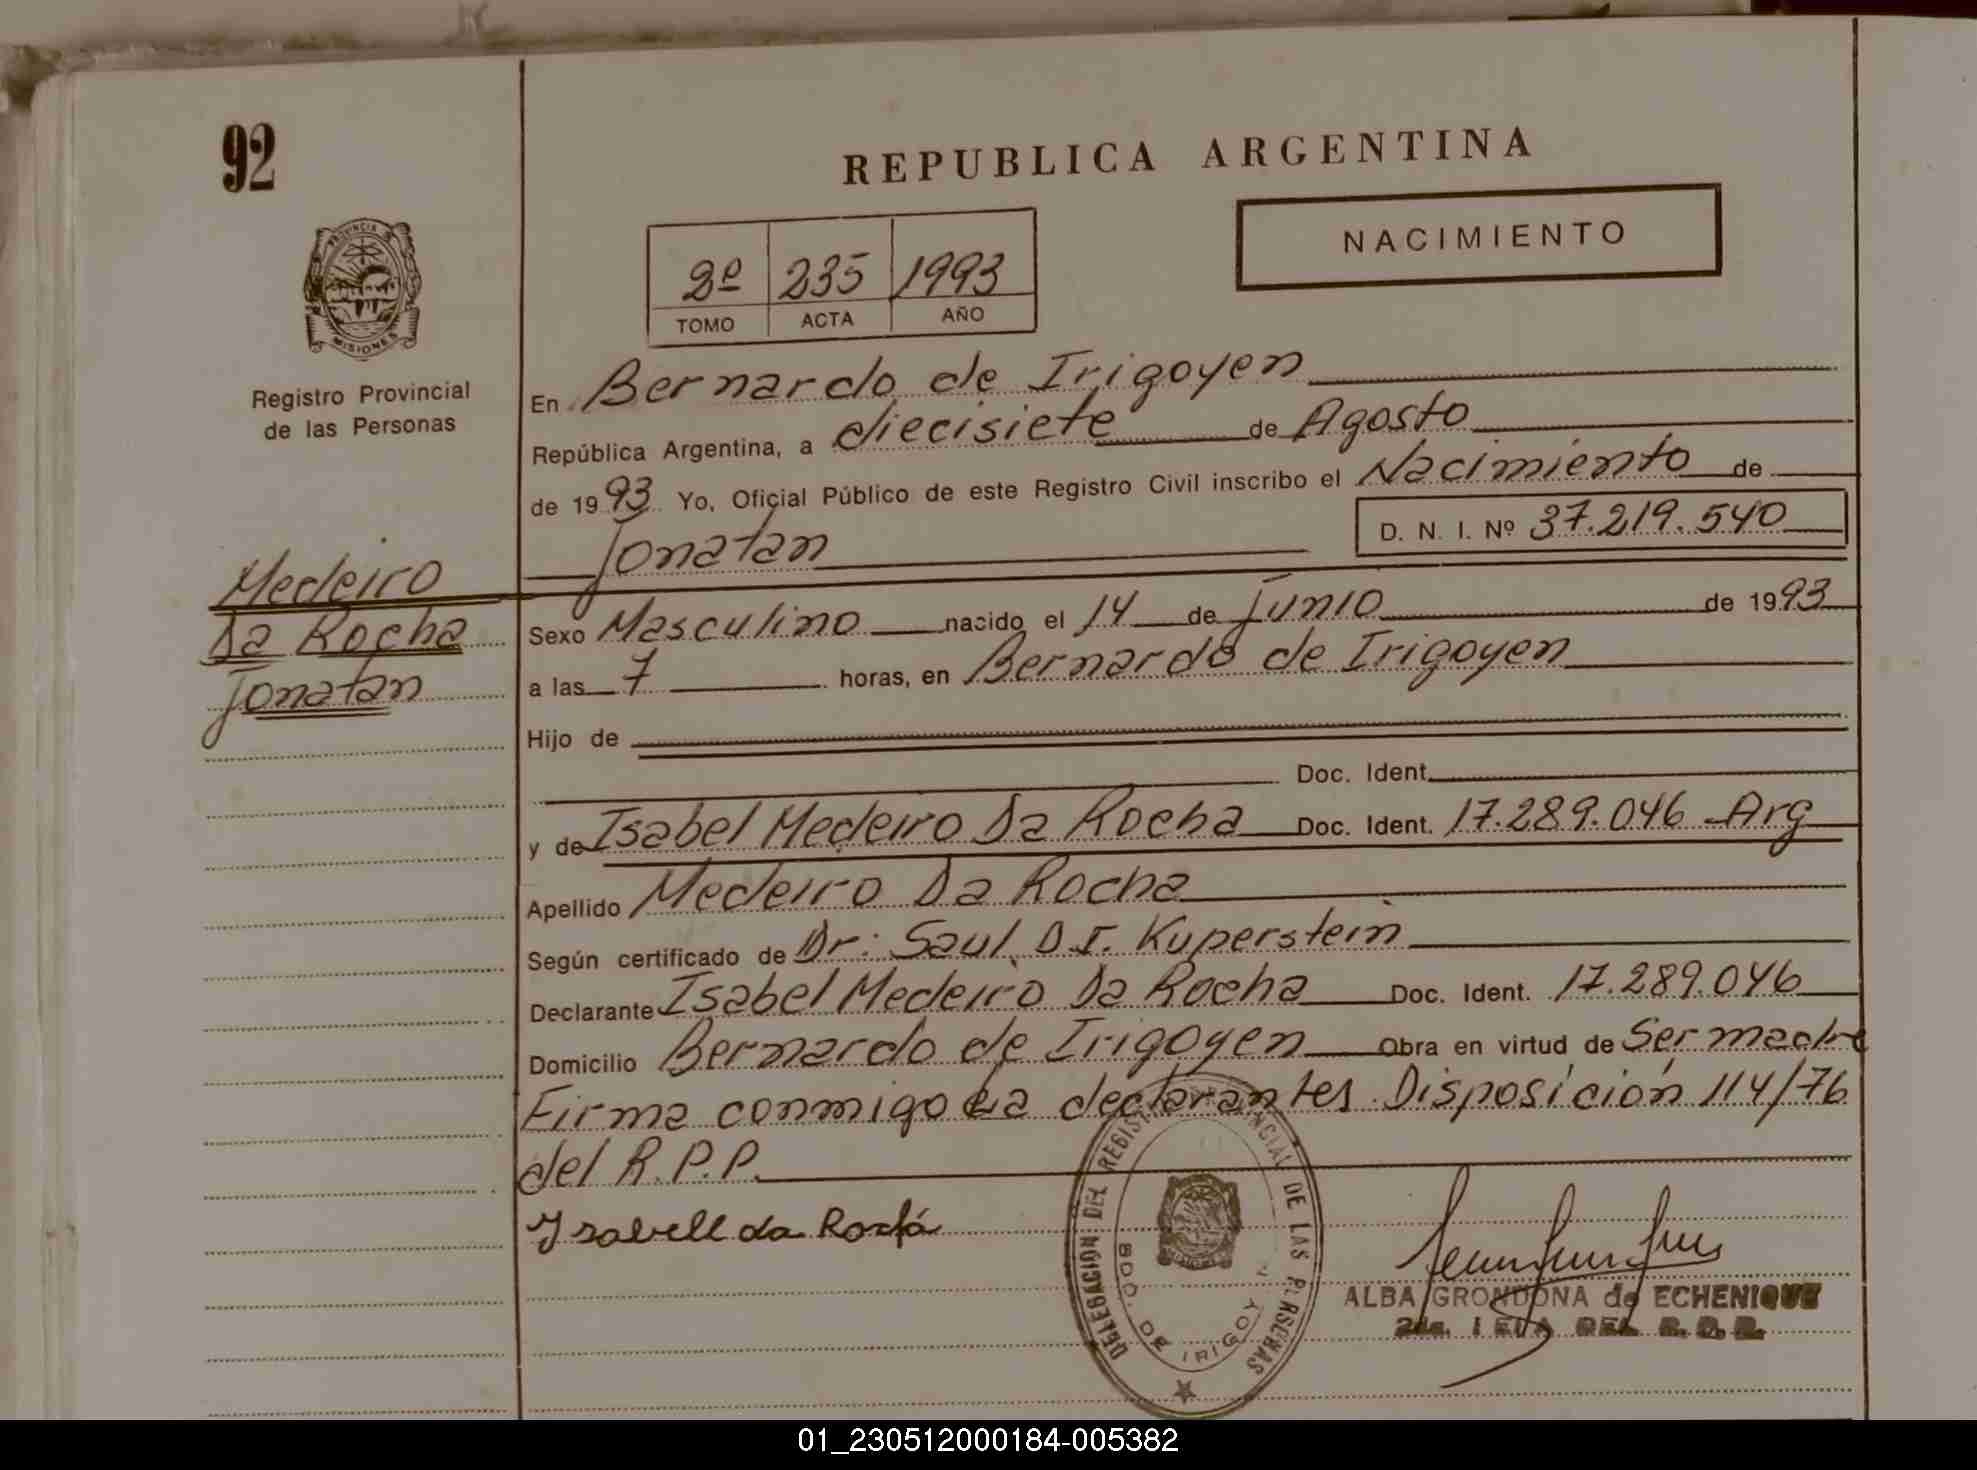 92
REPUBLICA ARGENTINA
NACIMIENTO
2º 235 1993
TOMO ACTA AÑO
PROVINCIA DE
MISIONES
Registro Provincial
de las Personas
En Bernardo de Irigoyen
República Argentina, a diecisiete de Agosto
de 1993 Yo, Oficial Público de este Registro Civil inscribo el Nacimiento de
Jonatan D. N. I. Nº 37.219.540
Medeiro
Da Rocha
Jonatan
Sexo Masculino nacido el 14 de Junio de 1993
a las 7 horas, en Bernardo de Irigoyen
Hijo de
Doc. Ident.
y de Isabel Medeiro Da Rocha Doc. Ident. 17.289.046 Arg
Apellido Medeiro Da Rocha
Según certificado de Dr: Saul D.I. Kuperstein
Declarante Isabel Medeiro Da Rocha Doc. Ident. 17.289.046
Domicilio Bernardo de Irigoyen Obra en virtud de Ser madre
Firma conmigo La declarantes Disposición 114/76
del R.P.P.
Ysabell da Rochá
DELEGACION DEL REGISTRO PROVINCIAL DE LAS PERSONAS
BDO. DE IRIGOYEN
ALBA GRONDONA de ECHENIQUE
01_230512000184-005382